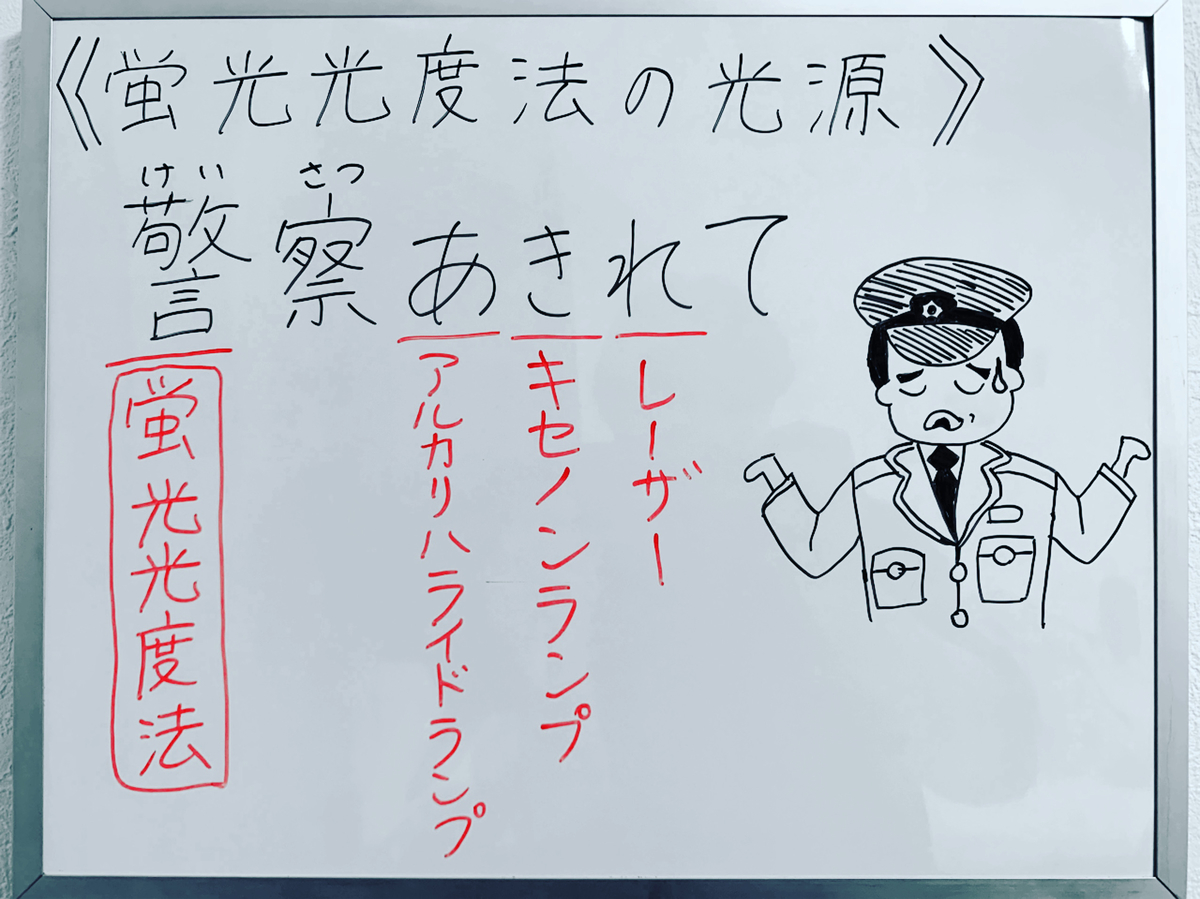 《蛍光光度法の光源》
けい さつ
警察あきれて
蛍光光度法
アルカリハライドランプ
キセノンランプ
レーザー